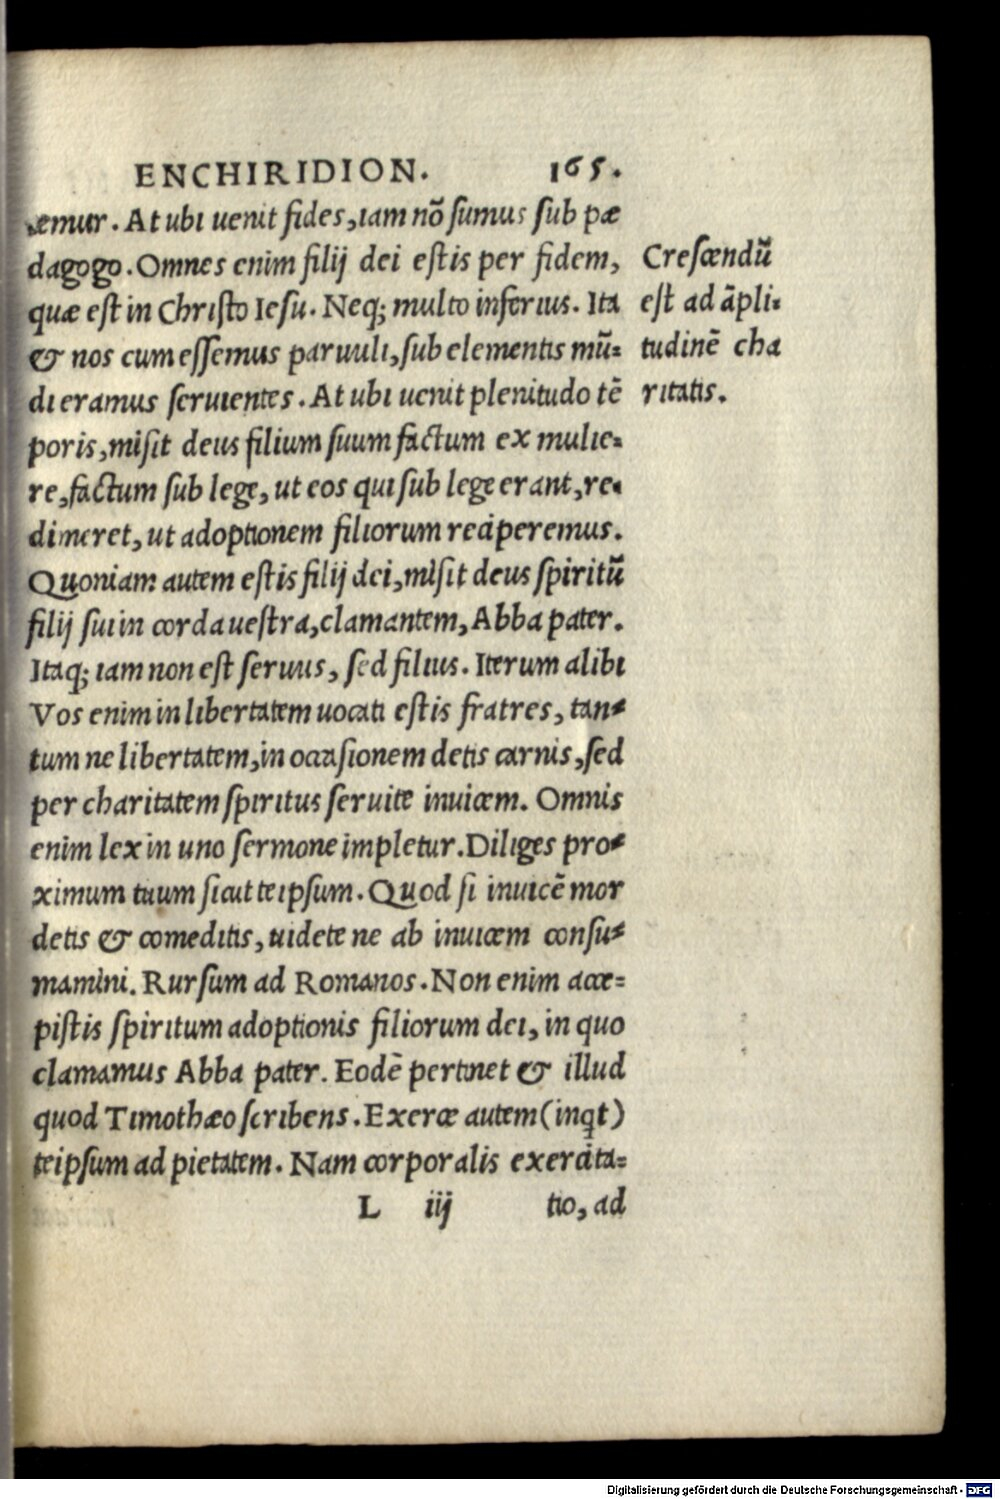 ENCHIRIDION. 165.
caremur. At ubi uenit fides, iam nõ sumus sub pæ
dagogo. Omnes enim filij dei estis per fidem,
quæ est in Christo Iesu. Neq; multo inferius. Ita
& nos cum essemus paruuli, sub elementis mũ=
di eramus seruientes. At ubi uenit plenitudo tẽ
poris, misit deus filium suum factum ex mulie=
re, factum sub lege, ut eos qui sub lege erant, re=
dimeret, ut adoptionem filiorum reciperemus.
Quoniam autem estis filij dei, misit deus spiritũ
filij sui in corda uestra, clamantem, Abba pater.
Itaq; iam non est seruus, sed filius. Iterum alibi
Vos enim in libertatem uocati estis fratres, tan=
tum ne libertatem, in occasionem detis carnis, sed
per charitatem spiritus seruite inuicem. Omnis
enim lex in uno sermone impletur. Diliges pro=
ximum tuum sicut teipsum. Quod si inuicẽ mor
detis & comeditis, uidete ne ab inuicem consu=
mamini. Rursum ad Romanos. Non enim acce=
pistis spiritum adoptionis filiorum dei, in quo
clamamus Abba pater. Eodẽ pertinet & illud
quod Timothæo scribens. Exerce autem (inqt)
teipsum ad pietatem. Nam corporalis exercita=
L iij tio, ad
Crescendũ
est ad ãpli=
tudinẽ cha
ritatis.
Digitalisierung gefördert durch die Deutsche Forschungsgemeinschaft - DFG